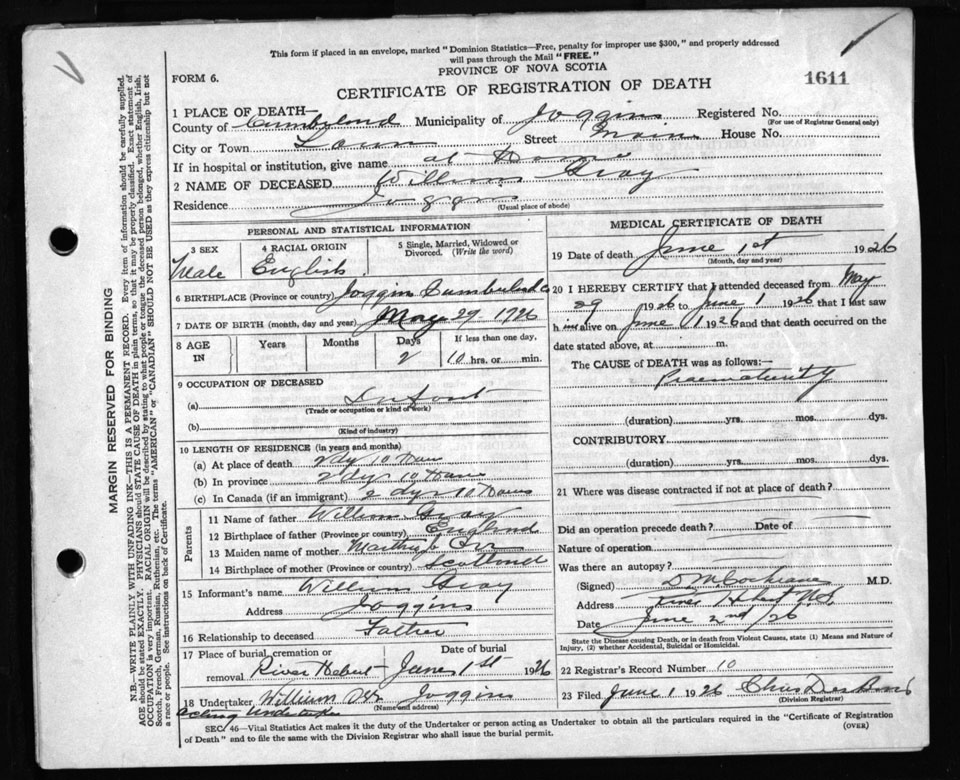 This form if placed in an envelope, marked "Dominion Statistics—Free, penalty for improper use $300," and properly addressed
will pass through the Mail "FREE."
PROVINCE OF NOVA SCOTIA
FORM 6.
1611
CERTIFICATE OF REGISTRATION OF DEATH
1 PLACE OF DEATH—
County of Cumberland Municipality of Joggins Registered No.
(For use of Registrar General only)
City or Town Town Street Main House No.
If in hospital or institution, give name at Home
2 NAME OF DECEASED William Gray
Residence Joggins
(Usual place of abode)
PERSONAL AND STATISTICAL INFORMATION
3 SEX Male
4 RACIAL ORIGIN English
5 Single, Married, Widowed or Divorced. (Write the word)
6 BIRTHPLACE (Province or country) Joggins Cumberland Co
7 DATE OF BIRTH (month, day and year) May 29 1926
8 AGE IN Years Months Days 2 If less than one day, 10 hrs. or min.
9 OCCUPATION OF DECEASED
(a) Infant
(Trade or occupation or kind of work)
(b)
(Kind of industry)
10 LENGTH OF RESIDENCE (in years and months)
(a) At place of death 2 dy 10 Hours
(b) In province 2 dys 10 Hours
(c) In Canada (if an immigrant) 2 dys 10 Hours
Parents
11 Name of father William Gray
12 Birthplace of father (Province or country) England
13 Maiden name of mother
14 Birthplace of mother (Province or country) Scotland
15 Informant's name William Gray
Address Joggins
16 Relationship to deceased Father
17 Place of burial, cremation or removal River Hebert Date of burial June 1st 1926
18 Undertaker William Joggins
(Name and address)
Acting Undertaker
MEDICAL CERTIFICATE OF DEATH
19 Date of death June 1st 1926
(Month, day and year)
20 I HEREBY CERTIFY that I attended deceased from May
29 1926 to June 1 1926 that I last saw
him alive on June 1 1926 and that death occurred on the
date stated above, at m.
The CAUSE of DEATH was as follows:—
Praematurity
(duration) yrs. mos. dys.
CONTRIBUTORY
(duration) yrs. mos. dys.
21 Where was disease contracted if not at place of death?
Did an operation precede death? Date of
Nature of operation
Was there an autopsy?
(Signed) D M Cochrane M.D.
Address River Hebert N.S.
Date June 2nd /26
State the Disease causing Death, or in death from Violent Causes, state (1) Means and Nature of
Injury, (2) whether Accidental, Suicidal or Homicidal.
22 Registrar's Record Number 10
23 Filed June 1 1926
(Division Registrar)
SEC. 46—Vital Statistics Act makes it the duty of the Undertaker or person acting as Undertaker to obtain all the particulars required in the "Certificate of Registration
of Death" and to file the same with the Division Registrar who shall issue the burial permit.
(OVER)
MARGIN RESERVED FOR BINDING
N.B.—WRITE PLAINLY WITH UNFADING INK—THIS IS A PERMANENT RECORD. Every item of information should be carefully supplied.
AGE should be stated EXACTLY. PHYSICIANS should STATE CAUSE OF DEATH in plain terms, so that it may be properly classified. Exact statement of
OCCUPATION is very important. RACIAL ORIGIN will be described by stating to what people or tongue the deceased person belonged, whether English, Irish,
Scotch, French, German, Russian, Ruthenian, etc. The terms "AMERICAN" or "CANADIAN" SHOULD NOT BE USED as they express citizenship but not
a race or people. See instructions on back of Certificate.